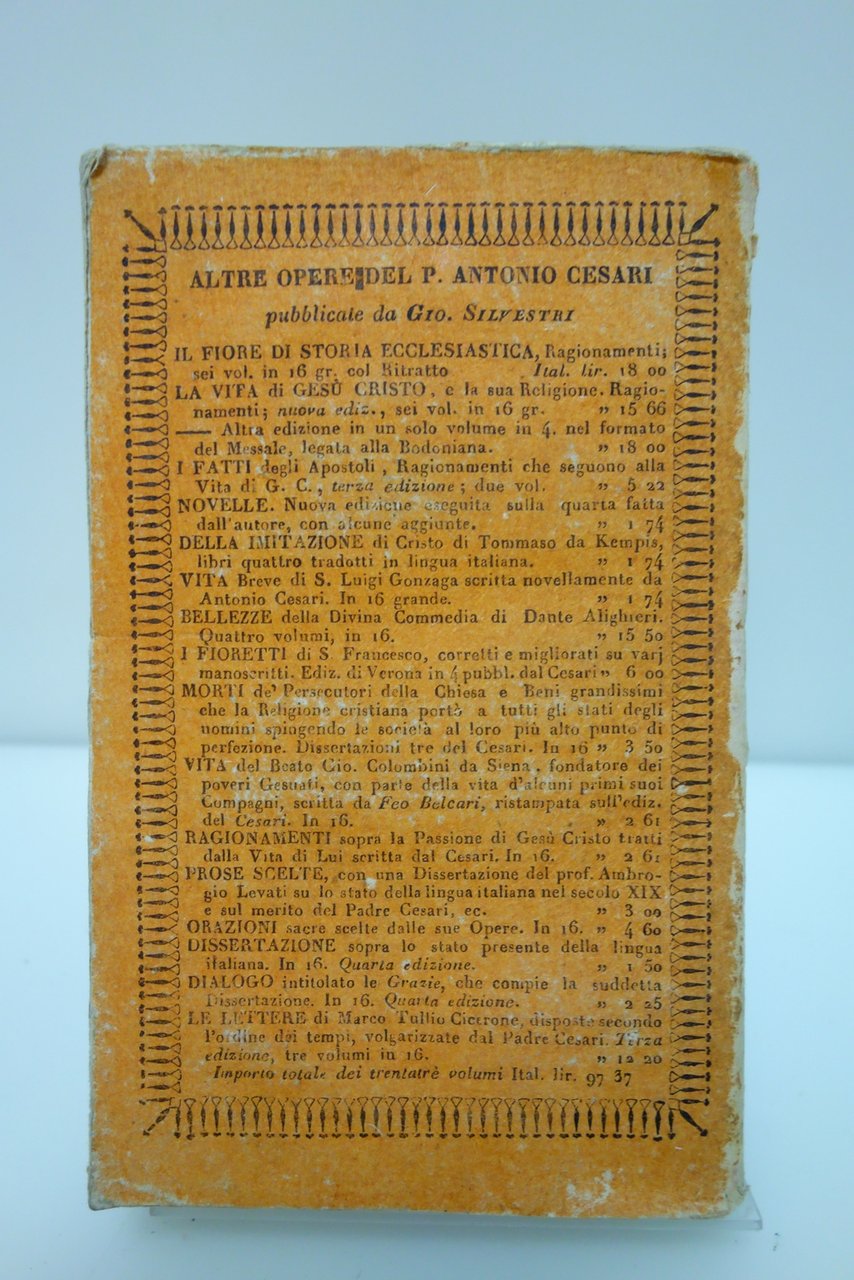 ALTRE OPERE DEL P. ANTONIO CESARI
pubblicate da GIO. SILVESTRI
IL FIORE DI STORIA ECCLESIASTICA, Ragionamenti;
sei vol. in 16 gr. col Ritratto Ital. lir. 18 00
LA VITA di GESÙ CRISTO, e la sua Religione. Ragio-
namenti; nuova ediz., sei vol. in 16 gr. » 15 66
—— Altra edizione in un solo volume in 4. nel formato
del Messale, legata alla Bodoniana. » 18 00
I FATTI degli Apostoli, Ragionamenti che seguono alla
Vita di G. C., terza edizione; due vol. » 5 22
NOVELLE. Nuova edizione eseguita sulla quarta fatta
dall'autore, con alcune aggiunte. » 1 74
DELLA IMITAZIONE di Cristo di Tommaso da Kempis,
libri quattro tradotti in lingua italiana. » 1 74
VITA Breve di S. Luigi Gonzaga scritta novellamente da
Antonio Cesari. In 16 grande. » 1 74
BELLEZZE della Divina Commedia di Dante Alighieri.
Quattro volumi, in 16. » 15 50
I FIORETTI di S. Francesco, corretti e migliorati su varj
manoscritti. Ediz. di Verona in 4 pubbl. dal Cesari » 6 00
MORTI de' Persecutori della Chiesa e Beni grandissimi
che la Religione cristiana portò a tutti gli stati degli
uomini spingendo le società al loro più alto punto di
perfezione. Dissertazioni tre del Cesari. In 16 » 3 50
VITA del Beato Gio. Colombini da Siena, fondatore dei
poveri Gesuati, con parte della vita d'alcuni primi suoi
Compagni, scritta da Feo Belcari, ristampata sull'ediz.
del Cesari. In 16. » 2 61
RAGIONAMENTI sopra la Passione di Gesù Cristo tratti
dalla Vita di Lui scritta dal Cesari. In 16. » 2 61
PROSE SCELTE, con una Dissertazione del prof. Ambro-
gio Levati su lo stato della lingua italiana nel secolo XIX
e sul merito del Padre Cesari, ec. » 3 00
ORAZIONI sacre scelte dalle sue Opere. In 16. » 4 60
DISSERTAZIONE sopra lo stato presente della lingua
italiana. In 16. Quarta edizione. » 1 50
DIALOGO intitolato le Grazie, che compie la suddetta
Dissertazione. In 16. Quarta edizione. » 2 25
LE LETTERE di Marco Tullio Cicerone, disposte secondo
l'ordine dei tempi, volgarizzate dal Padre Cesari. Terza
edizione, tre volumi in 16. » 12 20
Importo totale dei trentatrè volumi Ital. lir. 97 37